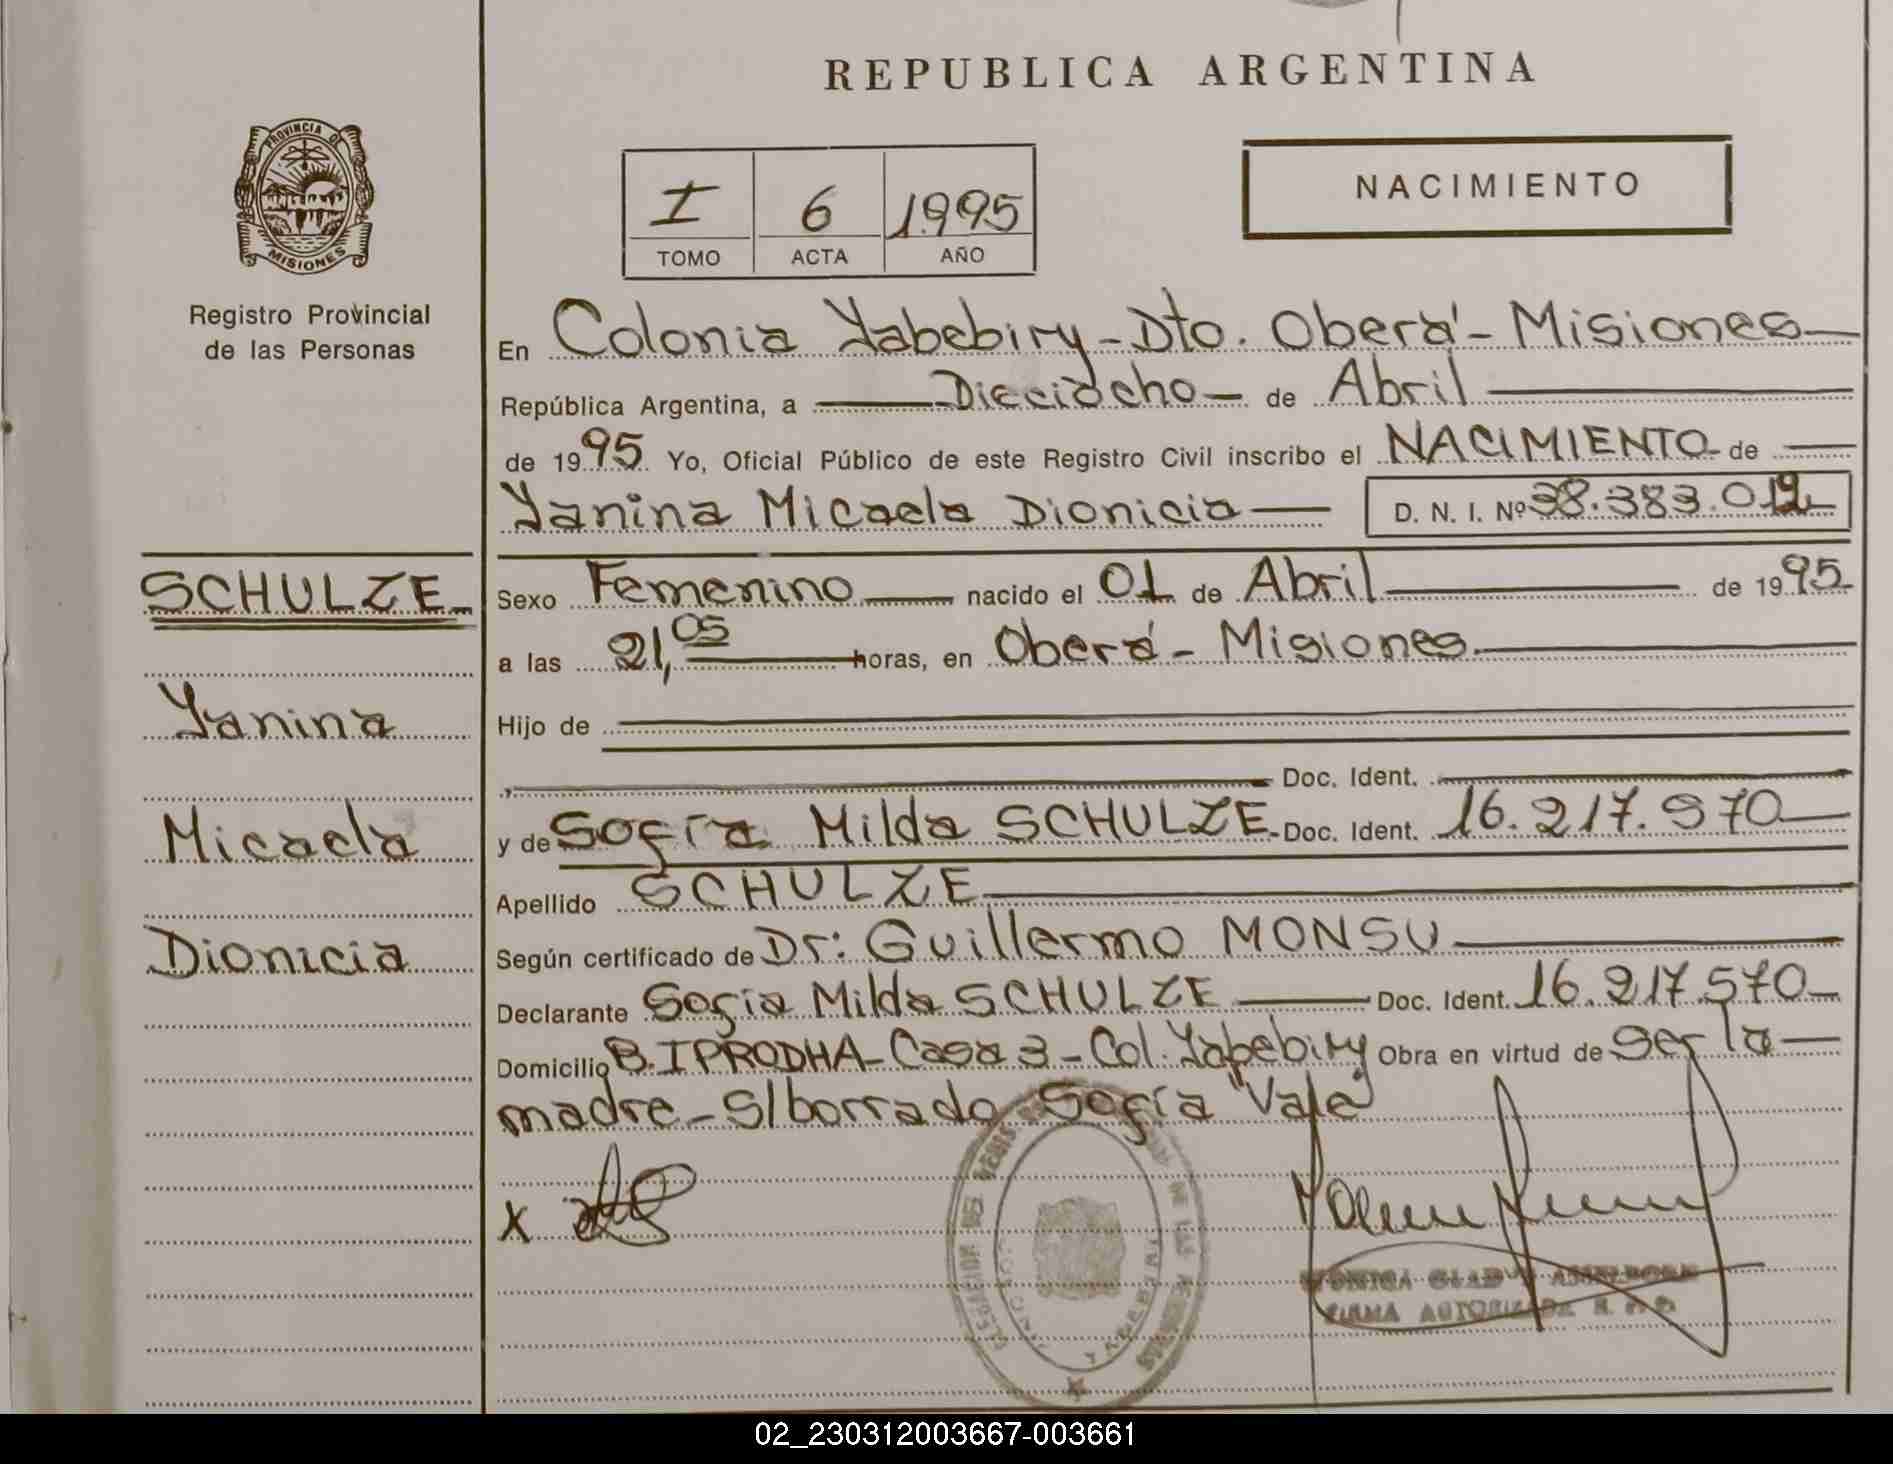 REPUBLICA ARGENTINA
PROVINCIA DE
MISIONES
Registro Provincial
de las Personas
I 6 1995
TOMO ACTA AÑO
NACIMIENTO
En Colonia Yabebiry - Dto. Oberá - Misiones
República Argentina, a Dieciocho de Abril
de 1995 Yo, Oficial Público de este Registro Civil inscribo el NACIMIENTO de
Yanina Micaela Dionicia D. N. I. Nº 38.383.012
SCHULZE
Yanina
Micaela
Dionicia
Sexo Femenino nacido el 01 de Abril de 1995
a las 21,05 horas, en Oberá - Misiones
Hijo de
Doc. Ident.
y de Sofía Milda SCHULZE - Doc. Ident. 16.217.570
Apellido SCHULZE
Según certificado de Dr: Guillermo MONSU
Declarante Sofía Milda SCHULZE Doc. Ident. 16.217.570
Domicilio B. IPRODHA - Casa 3 - Col. Yabebiry Obra en virtud de ser la
madre - S/borrado Sofía "Vale"
x
FIRMA AUTORIZADA
02_230312003667-003661